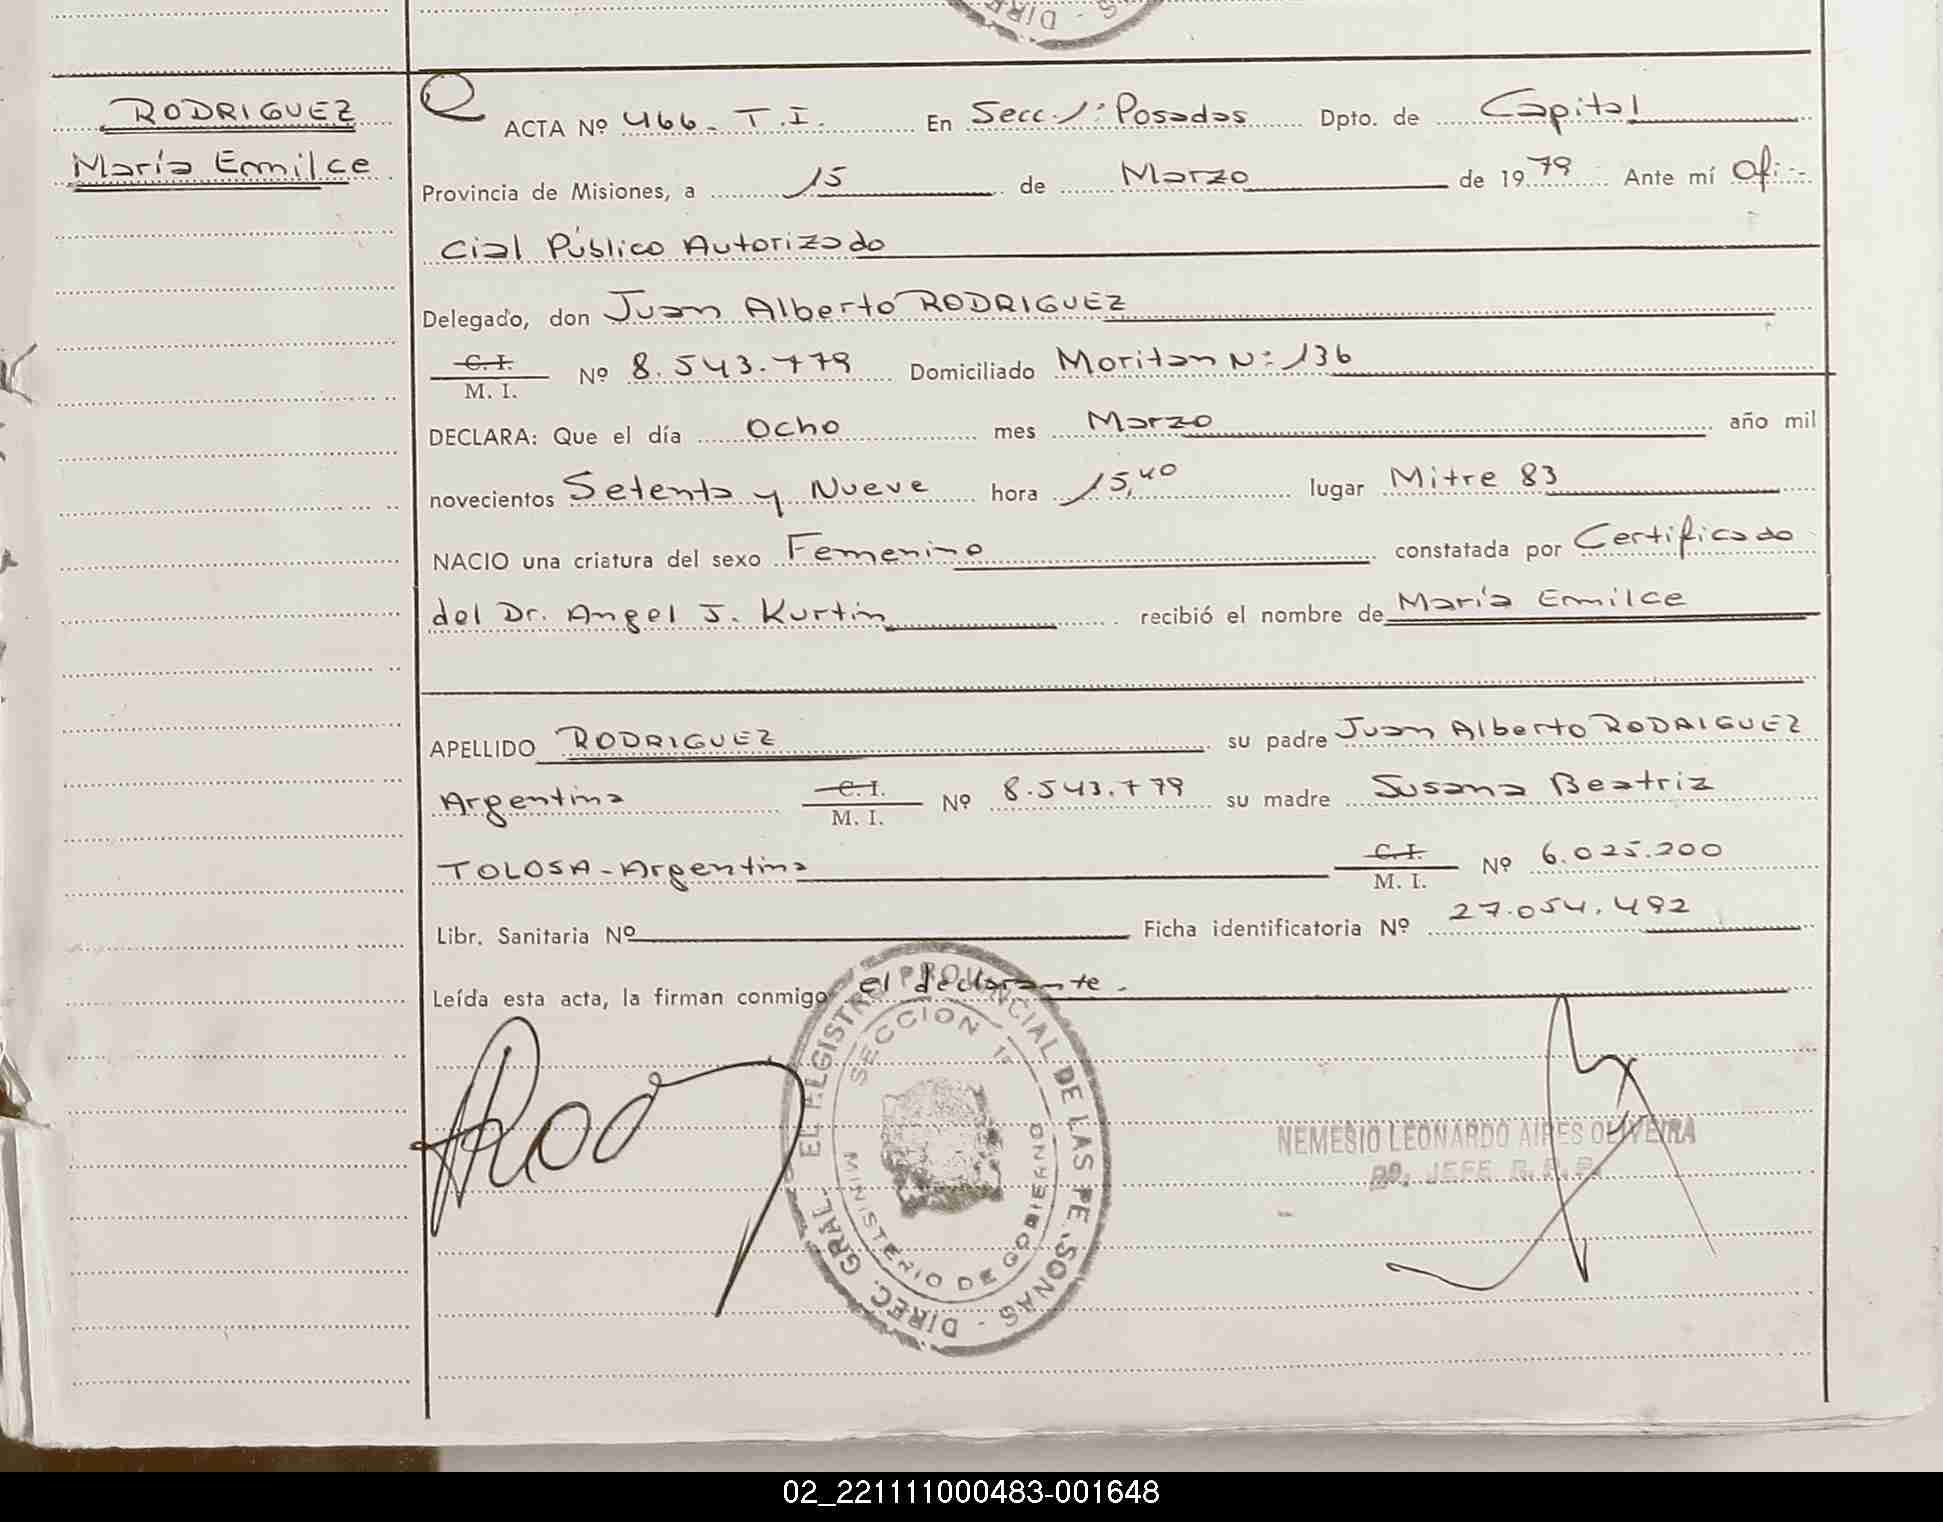 DIREC. G
RODRIGUEZ
María Ermilce
ACTA Nº 466- T.I. En Secc. 1ª: Posadas Dpto. de Capital
Provincia de Misiones, a 15 de Marzo de 1979 Ante mí Ofi-
cial Público Autorizado
Delegado, don Juan Alberto RODRIGUEZ
C. I.
M. I. Nº 8.543.779 Domiciliado Moritan Nº: 136
DECLARA: Que el día Ocho mes Marzo año mil
novecientos Setenta y Nueve hora 15,40 lugar Mitre 83
NACIO una criatura del sexo Femenino constatada por Certificado
del Dr. Angel J. Kurtin recibió el nombre de María Ermilce
APELLIDO RODRIGUEZ su padre Juan Alberto RODRIGUEZ
Argentina C. I.
M. I. Nº 8.543.779 su madre Susana Beatriz
TOLOSA-Argentina C. I.
M. I. Nº 6.025.200
Libr. Sanitaria Nº Ficha identificatoria Nº 27.054.492
Leída esta acta, la firman conmigo el declarante.
DIREC. GRAL. EL REGISTRO PROVINCIAL DE LAS PERSONAS
SECCION 1ª
MINISTERIO DE GOBIERNO
NEMESIO LEONARDO AIRES OLIVEIRA
JEFE R.P.P.
02_221111000483-001648